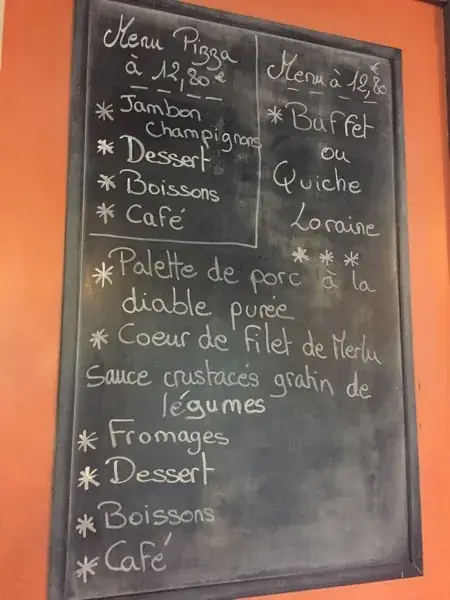 Menu Pizza
à 12,80 €
* Jambon
Champignons
* Dessert
* Boissons
* Café
Menu à 12,80 €
* Buffet
ou
Quiche
Loraine
* * *
* Palette de porc à la
diable purée
* Coeur de Filet de Merlu
Sauce crustacés gratin de
légumes
* Fromages
* Dessert
* Boissons
* Café